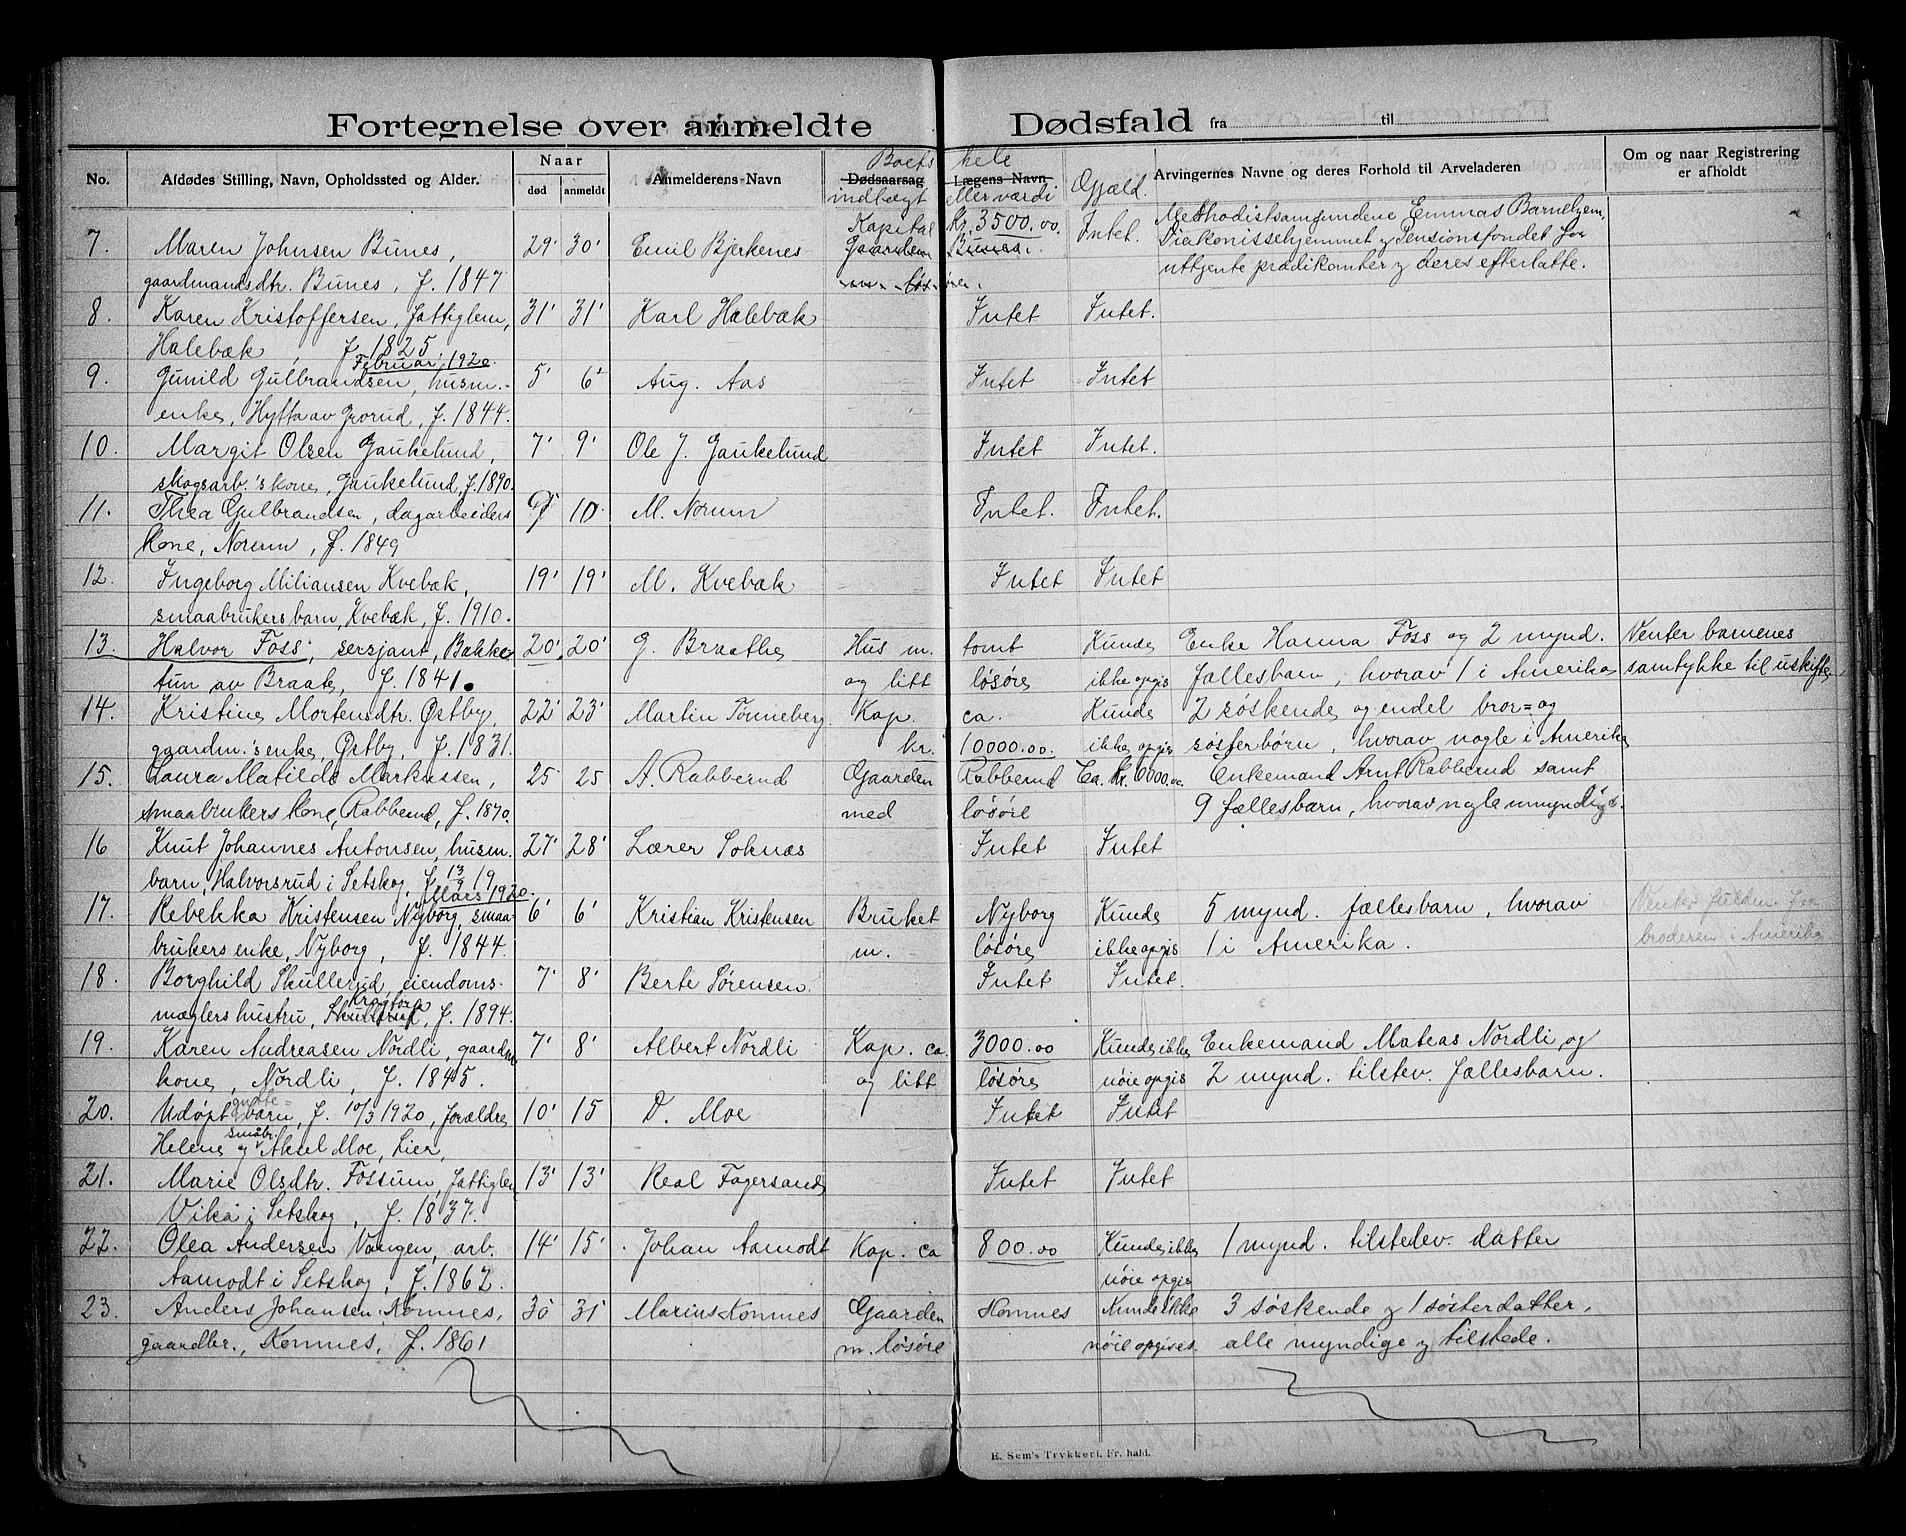 Fortegnelse over anmeldte Dødsfald fra til
No. Afdødes Stilling, Navn, Opholdssted og Alder. Naar død anmeldt Anmelderens Navn Dødsaarsag Lægens Navn Arvingernes Navne og deres Forhold til Arveladeren Om og naar Registrering er afholdt
Boets hele
indbægt eller værdi Gjæld.
Kapital Kr. 3500.00. Methodistsamfundene Emmas Barnehjem,
7. Maren Johnsen Bunes, 29' 30' Emil Bjerkenes Gaarden Bunes. Intet. Diakonissehjemmet og Pensionsfondet for
gaardmandsdtr. Bunes, f. 1847 m. løsøre. uttjente prædikanter og deres efterlatte.
8. Karen Kristoffersen, fattiglem, 31' 31' Karl Halebæk Intet Intet.
Halebæk, f 1825
Februar 1920.
9. Gunild Gulbrandsen, husm.- 5' 6' Aug. Aas Intet Intet
enke, Hytta av Grorud, f. 1844.
10. Margit Olsen Gaukelund, 7' 9' Ole J. Gaukelund Intet Intet.
skogsarb.'s kone, Gaukelund, f. 1890.
11. Thea Gulbrandsen, dagarbeiders 10 M. Norum Intet. Intet.
kone, Norum, f. 1849
12. Ingeborg Miliansen Kvebæk, 19' 19' M. Kvebæk Intet Intet
smaabrukersbarn, Kvebæk, f. 1910.
13. Halvor Foss, sersjant, Bakke 20' 20' G. Braathe Hus m. tomt Kunde Enke Hanna Foss og 2 mynd. Venter barnenes
tun av Braate, f. 1841. og litt løsøre ikke opgis fællesbarn, hvorav 1 i Amerika samtykke til uskifte.
14. Kristine Mortensdtr. Østby, 22' 23' Martin Tønneberg. Kap. ca. Kunde 2 søskende og endel bror= og
gaardm.'s enke, Østby, f. 1831. kr. 10000.00. ikke opgis søsterbørn, hvorav nogle i Amerika
15. Laura Matilde Markussen, 25 25 A. Rabberud Gaarden Rabberud Ca. kr. 6000.00. Enkemand Arnt Rabberud samt
smaabrukers kone, Rabberud, f. 1870. med løsøre 9 fællesbarn, hvorav nogle umyndige.
16 Knut Johannes Antonsen, husm. 27' 28' Lærer Soknæs Intet Intet
barn, Halvorsrud i Setskog, f. 13/9 19.
Mars 1920.
17. Rebekka Kristensen Nyborg, smaa- 6' 6' Kristian Kristensen Bruket Nyborg Kunde 5 mynd. fællesbarn, hvorav Venter fuldm. fra
brukers enke, Nyborg, f. 1844. m. løsøre ikke opgis 1 i Amerika. broderen i Amerika
18. Borghild Skullerud, eiendoms- 7' 8' Berte Sørensen Intet Intet.
mæglers hustru, Skullerud, f. 1894.
19. Karen Andreasen Nordli, gaardm 7' 8' Albert Nordli Kap. ca. 3000.00 Kunde ikke Enkemand Mateas Nordli, og
kone, Nordli, f. 1845. og litt løsøre nøie opgis 2 mynd. tilstev. fællesbarn.
20. Udøpt gutte= barn, f. 10/3 1920, forældre 10' 15 D. Moe Intet Intet
Helene og småbr. Aksel Moe, Lier,
21. Marie Olsdtr. Fossum, fattiglem 13' 13' Real Fagersand Intet Intet
Vika i Setskog, f. 1837.
22. Olea Andersen Vangen, arb. 14' 15' Johan Aamodt Kap. ca 800.00 Kunde ikke 1 mynd. tilstedev. datter
Aamodt i Setskog, f. 1862. nøie opgis
23. Anders Johansen Komnes, 30' 31' Marius Komnes Gaarden Komnes Kunde ikke 3 søskende og 1 søsterdatter,
gaardbr., Komnes, f. 1861 m. løsøre nøie opgives. alle myndige og tilstede.
E. Sem's Trykkeri. Fr. hald.